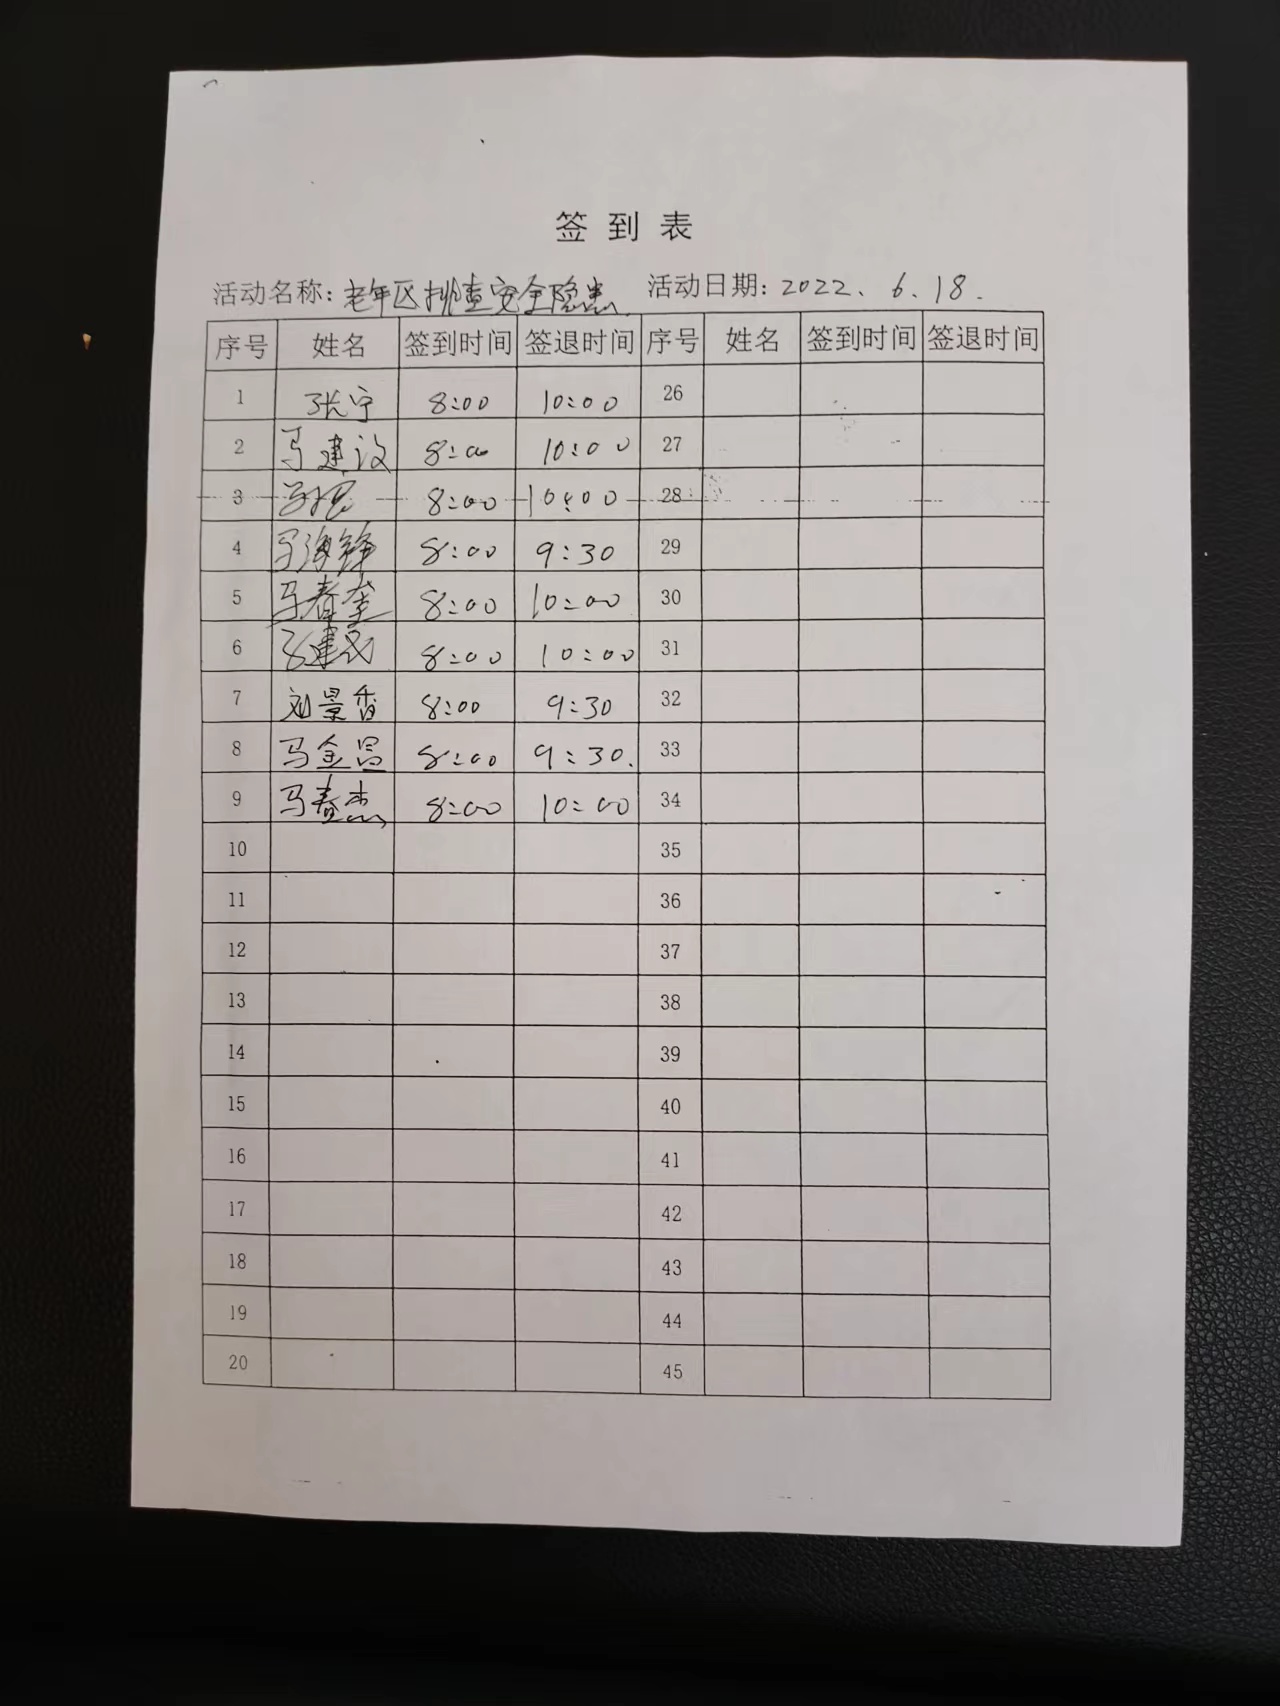 签到表
活动名称：老年区排查安全隐患 活动日期：2022.6.18.
序号 姓名 签到时间 签退时间 序号 姓名 签到时间 签退时间
1 张宁 8:00 10:00 26
2 马建设 8:00 10:00 27
3 8:00 10:00 28
4 马海锋 8:00 9:30 29
5 马春奎 8:00 10:00 30
6 建民 8:00 10:00 31
7 刘景香 8:00 9:30 32
8 马金昌 8:00 9:30. 33
9 马春杰 8:00 10:00 34
10 35
11 36
12 37
13 38
14 39
15 40
16 41
17 42
18 43
19 44
20 45